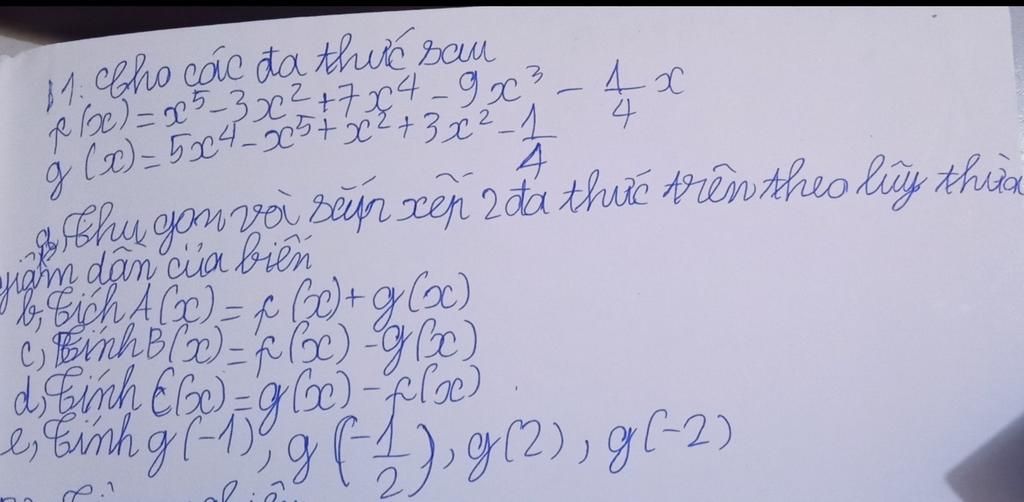 11. Cho các đa thức sau
f(x) = x⁵ - 3x² + 7x⁴ - 9x³ - 1/4 x
g(x) = 5x⁴ - x⁵ + x² + 3x² - 1/4
a, Thu gọn và sắp xếp 2 đa thức trên theo lũy thừa
giảm dần của biến
b, Tích A(x) = f(x) + g(x)
c, Tính B(x) = f(x) - g(x)
d, Tính C(x) = g(x) - f(x)
e, Tính g(-1), g(-1/2), g(2), g(-2)